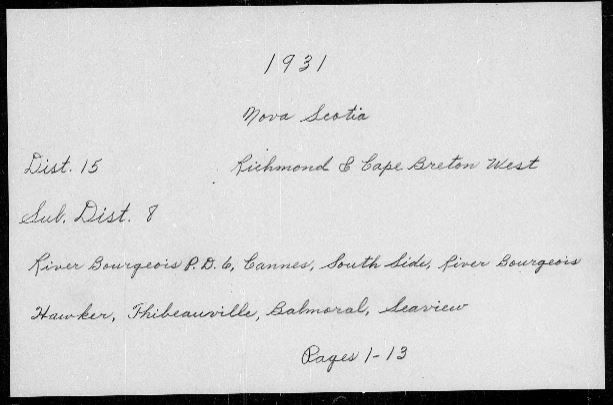 1931
Nova Scotia
Dist. 15 Richmond & Cape Breton West
Sub. Dist. 8
River Bourgeois P.D. 6, Cannes, South Side, River Bourgeois
Hawker, Thibeauville, Balmoral, Seaview
Pages 1-13